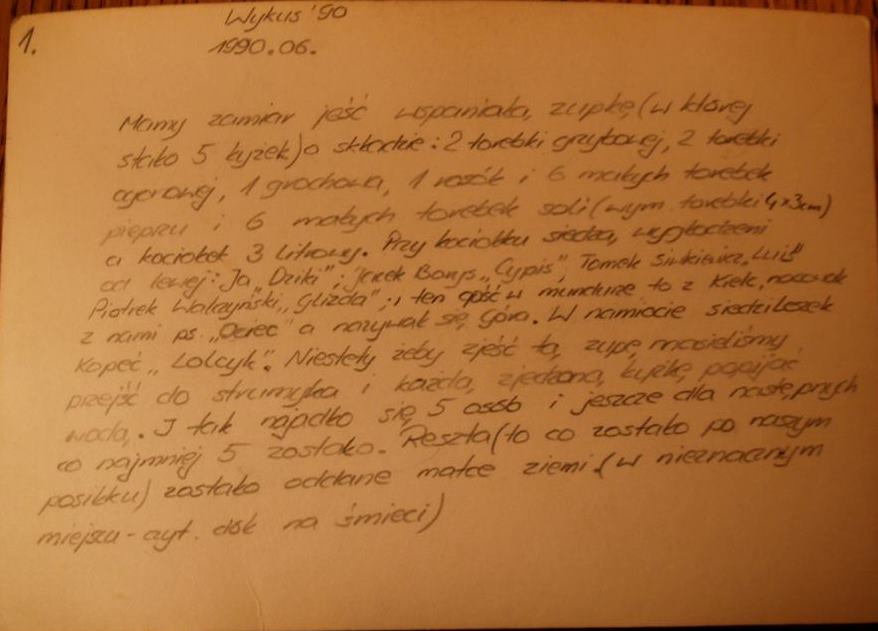 1.
Wykus '90
1990.06.
Mamy zamiar jeść wspaniałą zupkę (w której
stało 5 łyżek) o składzie: 2 torebki grzybowej, 2 torebki
ogonowej, 1 grochowa, 1 rosół i 6 małych torebek
pieprzu i 6 małych torebek soli (wym torebki 4x3cm)
a kociołek 3 litrowy. Przy kociołku siedzą wygłodzeni
od lewej: Ja „Dziki"; Jacek Borys „Cypis", Tomek „Luis"
Piotrek Walczyński „Glizda"; i ten gość w mundurze to z Kielc, nocował
z nami ps. „Ociec" a nazywał się Góra. W namiocie siedzi Leszek
Kopeć „Lolcyk". Niestety żeby zjeść tą zupę musieliśmy
przejść do strumyka i każdą zjedzoną łyżkę popijać
wodą. I tak najadło się 5 osób i jeszcze dla następnych
co najmniej 5 zostało. Reszta (to co zostało po naszym
posiłku) zostało oddane matce ziemi. (w nieznacznym
miejscu - czyt. dół na śmieci)